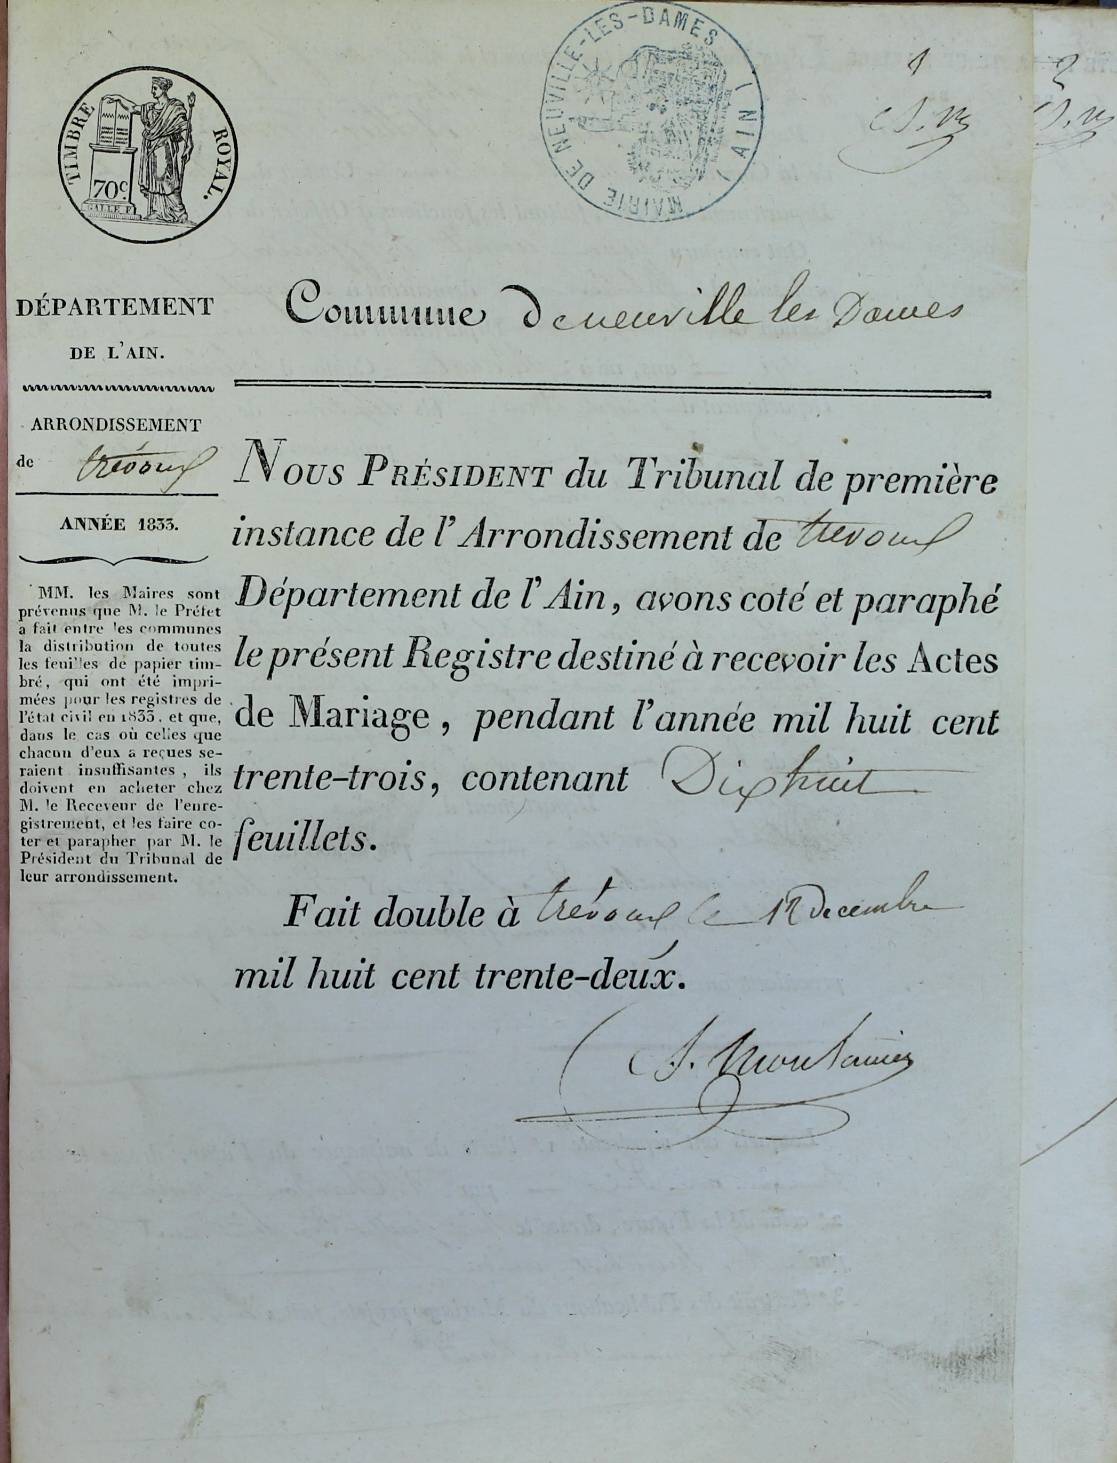 TIMBRE ROYAL.
70c
GALLE F.
MAIRIE DE NEUVILLE-LES-DAMES ( AIN )
1
2
DÉPARTEMENT
DE L'AIN.
ARRONDISSEMENT
de trévoux
ANNÉE 1833.
MM. les Maires sont
prévenus que M. le Préfet
a fait entre les communes
la distribution de toutes
les feuilles de papier tim-
bré, qui ont été impri-
mées pour les registres de
l'état civil en 1833, et que,
dans le cas où celles que
chacun d'eux a reçues se-
raient insuffisantes, ils
doivent en acheter chez
M. le Receveur de l'enre-
gistrement, et les faire co-
ter et parapher par M. le
Président du Tribunal de
leur arrondissement.
Commune De neuville les Dames
NOUS PRÉSIDENT du Tribunal de première
instance de l'Arrondissement de trevoux
Département de l'Ain, avons coté et paraphé
le présent Registre destiné à recevoir les Actes
de Mariage, pendant l'année mil huit cent
trente-trois, contenant Dix huit
feuillets.
Fait double à trévoux le 12 Decembre
mil huit cent trente-deux.